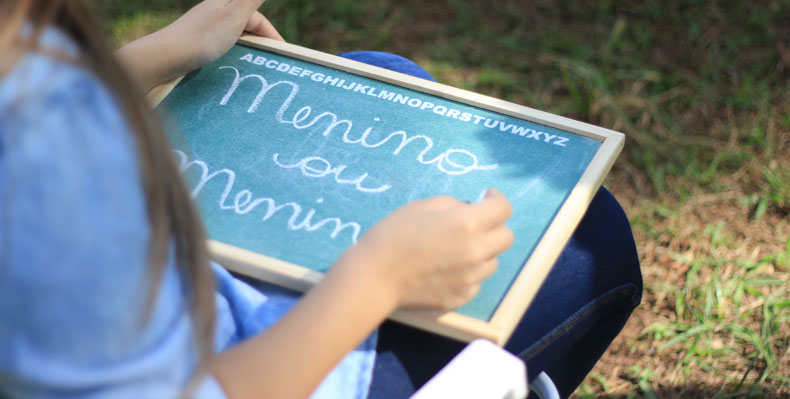 ABCDEFGHIJKLMNOPQRSTUVWXYZ
Menino
ou
Menin